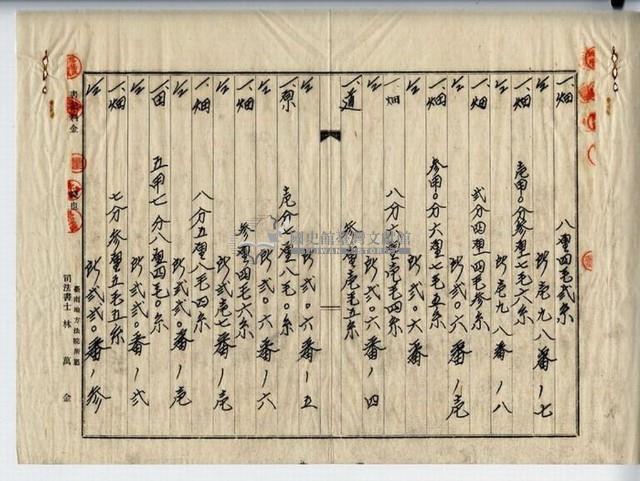 一、畑 八厘四毛弐糸
仝 所壱九八番ノ七
一、畑 壱甲〇分参厘七毛六糸
仝 所壱九八番ノ八
一、畑 弐分四厘四毛参糸
仝 所弐〇六番ノ壱
一、畑 参甲〇分六厘七毛五糸
仝 所弐〇六番
一、畑 八分 毛四糸
仝 所弐〇六番ノ四
一、道 参厘壱毛五糸
仝 所弐〇六番ノ五
一、原 壱分七厘八毛〇糸
仝 所弐〇六番ノ六
一、畑 参 四毛六糸
仝 所弐壱七番ノ壱
一、畑 八分五厘八毛四糸
仝 所弐弐〇番ノ壱
一、田 五甲七分八厘四毛〇糸
仝 所弐弐〇番ノ弐
一、畑 七分参厘五毛五糸
仝 所弐弐〇番ノ参
臺南地方法院所屬
司法書士 林萬金
國史館臺灣文獻館